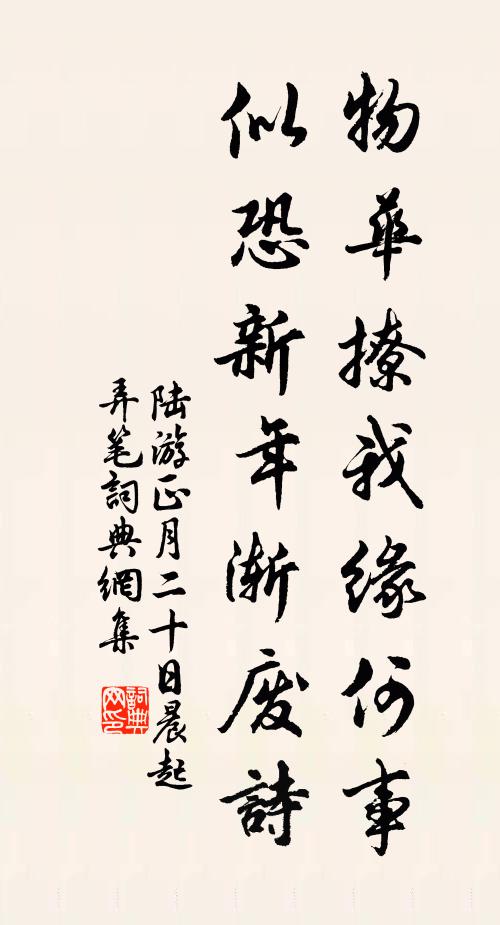 物華撩我緣何事
似恐新年漸廢詩
陆游正月二十日晨起
弄笔詞典網集
詞典
网印